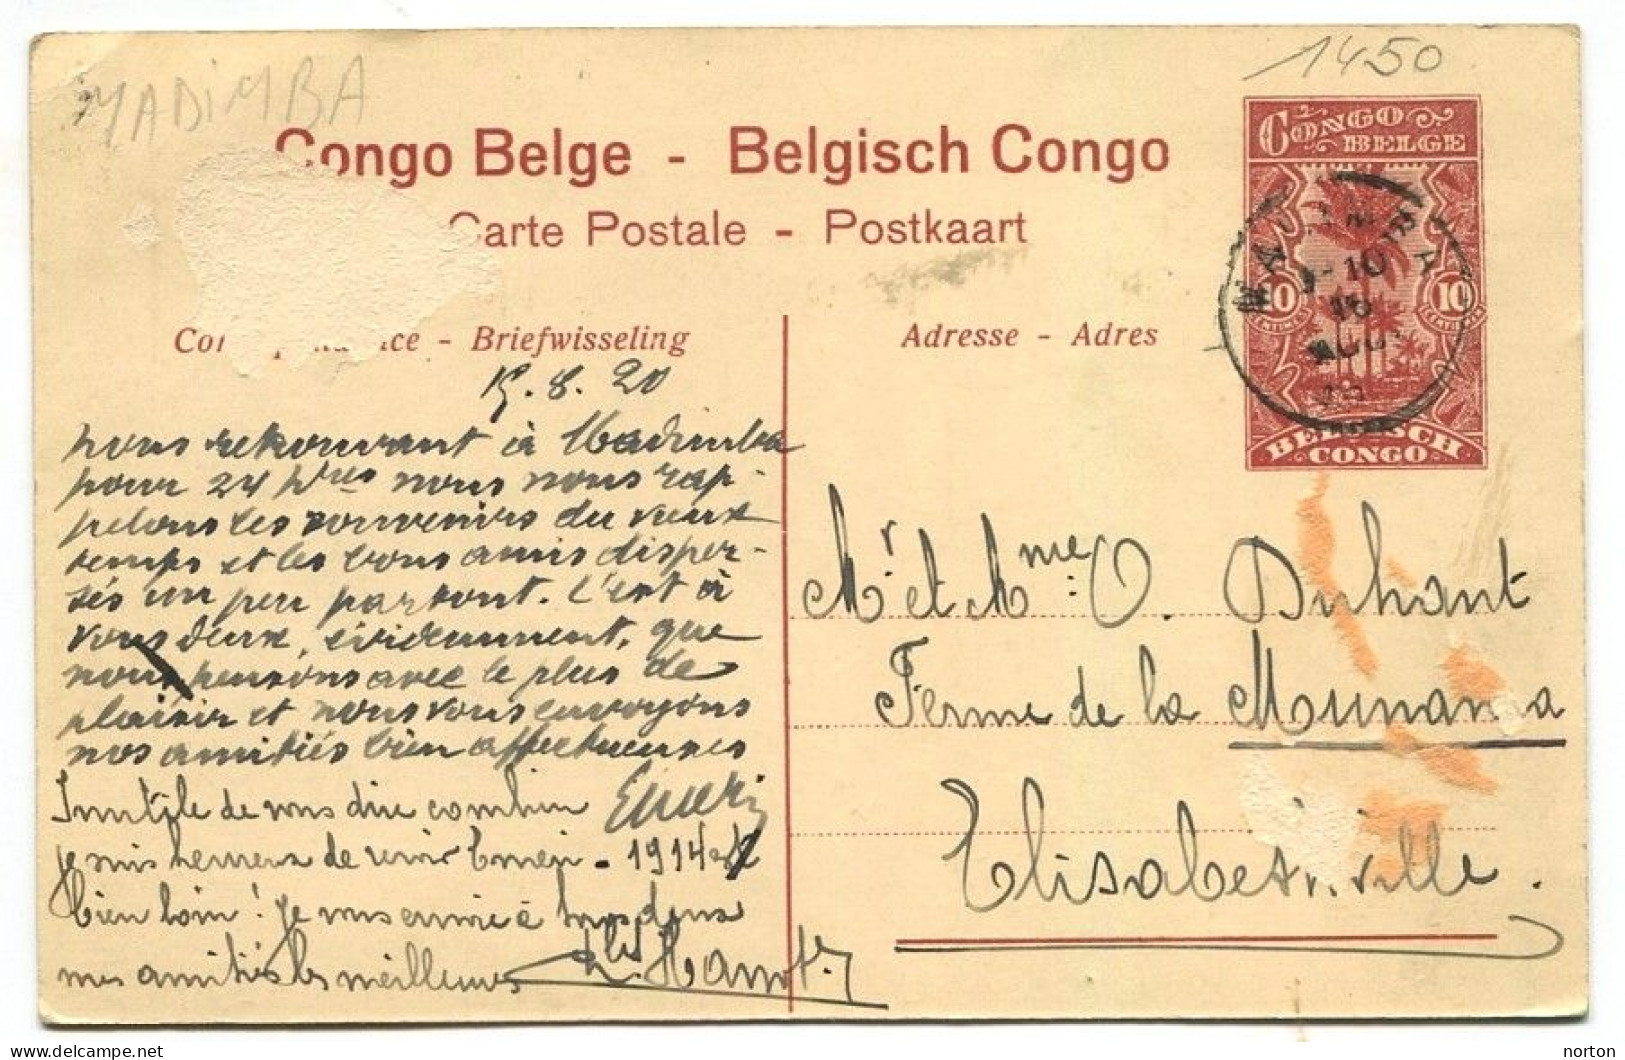 MADIMBA
1450
Congo Belge - Belgisch Congo
Carte Postale - Postkaart
CONGO BELGE
10 10
BELGISCH CONGO
Briefwisseling
Adresse - Adres
15.8.20
nous retrouvant à Madimba
pour 24 hres nous nous rap-
pelons les souvenirs du vieux
temps et les bons amis disper-
sés un peu partout. C'est à
vous deux, évidemment, que
nous pensons avec le plus de
plaisir et nous vous envoyons
nos amitiés bien affectueuses
Inutile de vous dire combien
je suis heureux de revoir Emeri - 1914 est
bien loin! Je vous envoie à tous deux
mes amitiés les meilleures
Mr et Mme O. Duhant
Ferme de la Munama
Elisabethville.
delcampe.net
norton